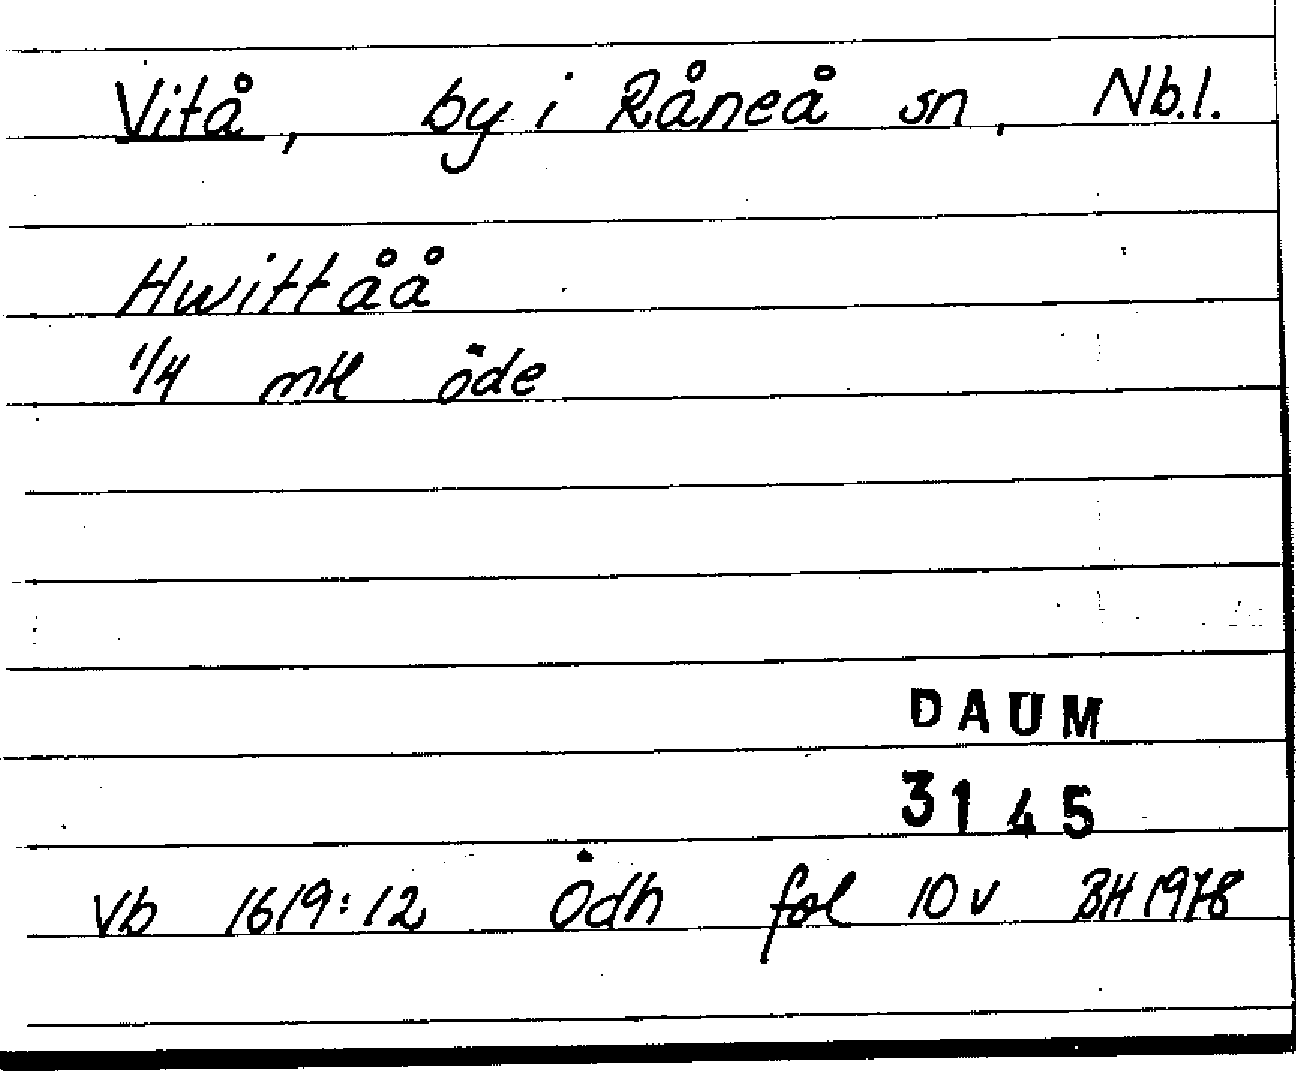 Vitå, by i Råneå sn, Nb.l.
Hwittåå
1/4 mtl öde
DAUM
3145
Vb 1619:12 Ödh fol 10 v BH 1978